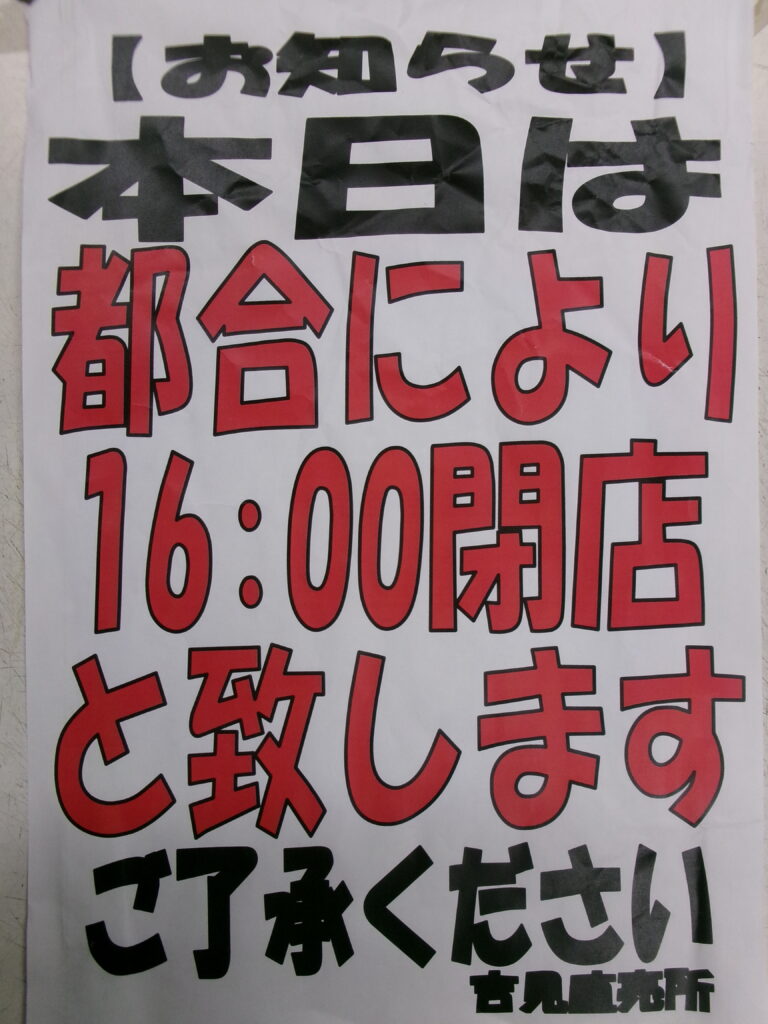 【お知らせ】
本日は
都合により
16:00閉店
と致します
ご了承ください
吉見直売所